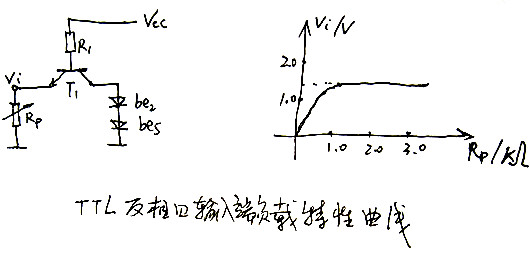 Vcc
R1
Vi
T1
Rp
be2
be5
Vi/V
2.0
1.0
1.0 2.0 3.0
Rp/kΩ
TTL反相口输入端负载特性曲线